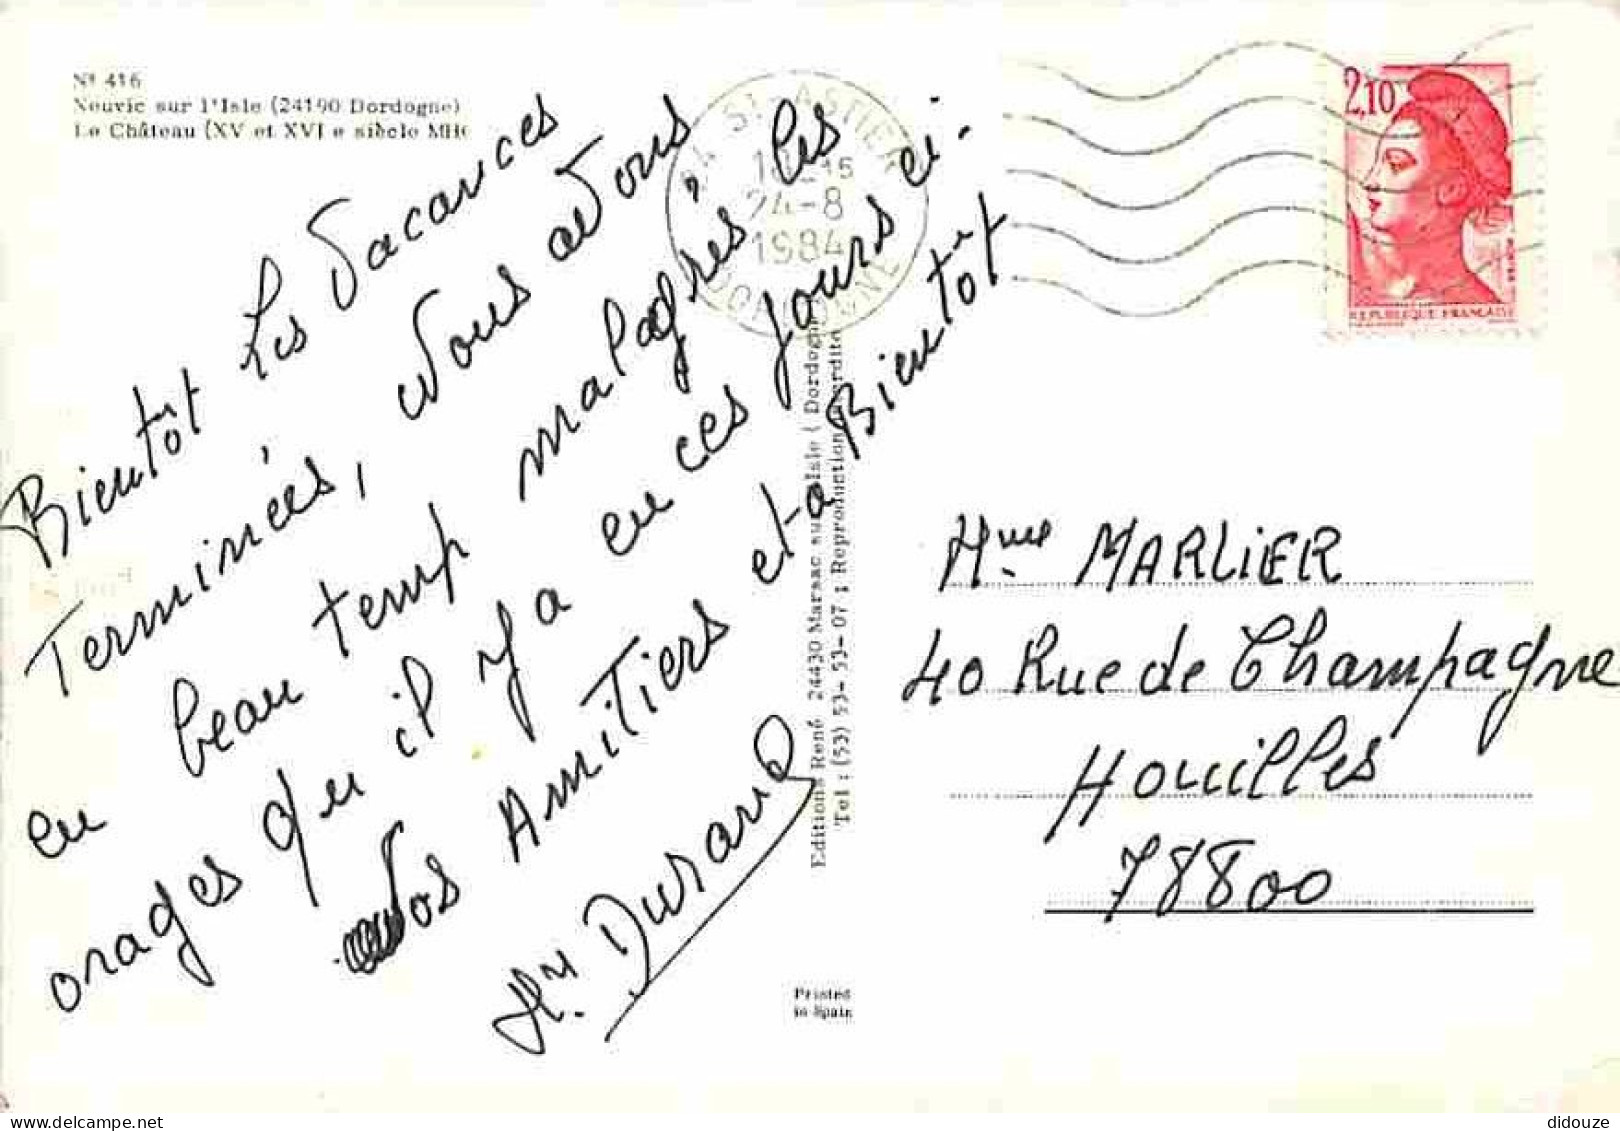 Nº 416
Neuvic sur l'Isle (24190 Dordogne)
Le Château (XV et XVI e siècle MH(
Bientôt Les Vacances
Terminées, Nous avons
eu beau temp malagrés les
orages qu'il y a eu ces jours ci.
Nos Amitiers et a Bientôt
Durand
24 ST-ASTIER
24-8
1984
DORDOGNE
2,10
REPUBLIQUE FRANÇAISE
Editions René 24430 Marsac sur Isle ( Dordogne
Tel : (53) 53-53-07 ; Reproduction interdite
Printed
in Spain
Mme MARLIER
40 Rue de Champagne
Houilles
78800
didouze